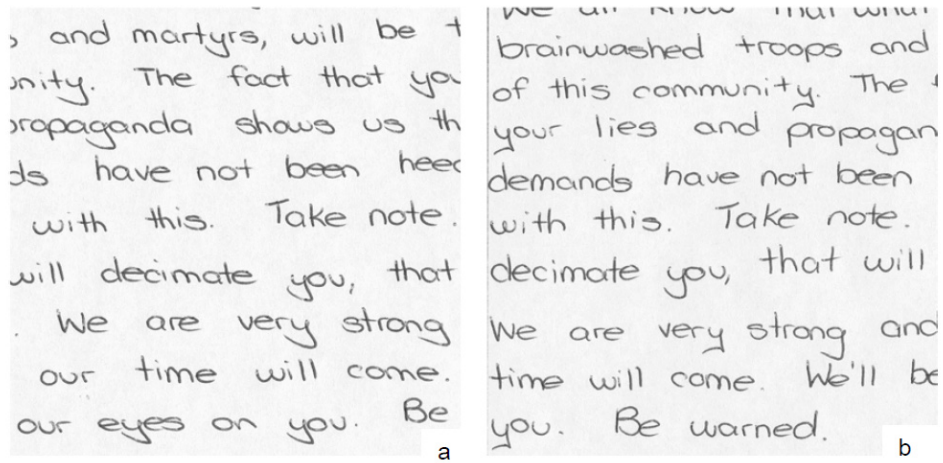 and martyrs, will be
The fact that
shows us
have not been
with this. Take note.
will decimate you, that
We are very strong
our time will come.
our eyes on you. Be
a
brainwashed troops and
of this community. The
your lies and
demands have not been
with this. Take note.
decimate you, that will
We are very strong and
time will come. We'll be
you. Be warned.
b